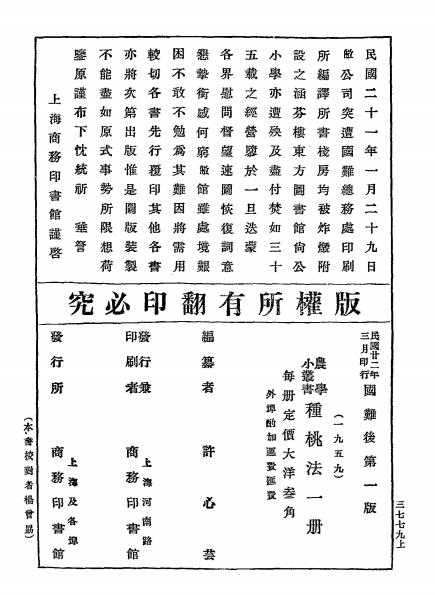 民國二十一年一月二十九日
敝公司突遭國難總務處印刷
所編譯所書棧房均被炸燬附
設之涵芬樓東方圖書館尚公
小學亦遭殃及盡付焚如三十
五載之經營隳於一旦迭蒙
各界慰問督望速圖恢復詞意
懇摯銜感何窮敝館雖處境艱
困不敢不勉爲其難因將需用
較切各書先行覆印其他各書
亦將次第出版惟是圖版裝製
不能盡如原式事勢所限想荷
鑒原謹布下忱統祈 垂詧
上海商務印書館謹啓
版權所有翻印必究
民國廿二年
三月印行
國難後第一版
(一九五九)
農學
小叢書
種桃法一册
每册定價大洋叁角
外埠酌加運費匯費
編纂者 許心芸
發行兼
印刷者
上海河南路
商務印書館
發行所
上海及各埠
商務印書館
(本書校對者楊曾勗)
三七七九上